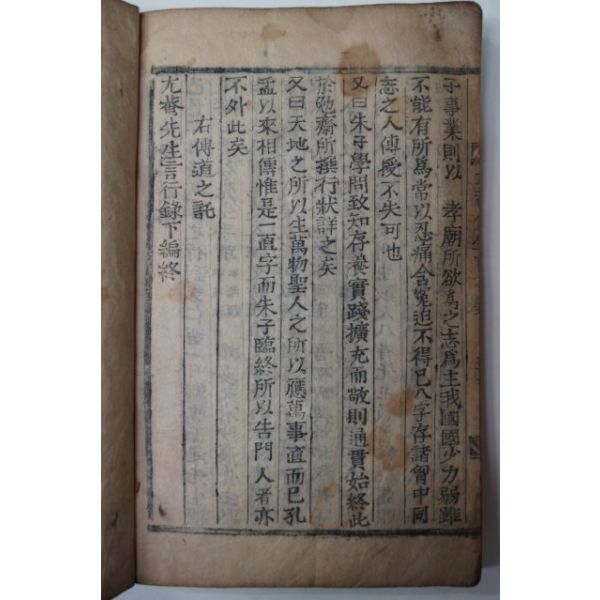 子事業則以 孝廟所欲爲之志爲主我國國少力弱雖
不能有所爲常以忍痛含冤迫不得已八字存諸胷中同
志之人傳授不失可也
又曰朱子學問致知存養實踐擴充而敬則通貫始終此
於勉齋所撰行狀詳之矣
又曰天地之所以生萬物聖人之所以應萬事直而已孔
孟以來相傳惟是一直字而朱子臨終所以告門人者亦
不外此矣
右傳道之託
尤菴先生言行錄下編終